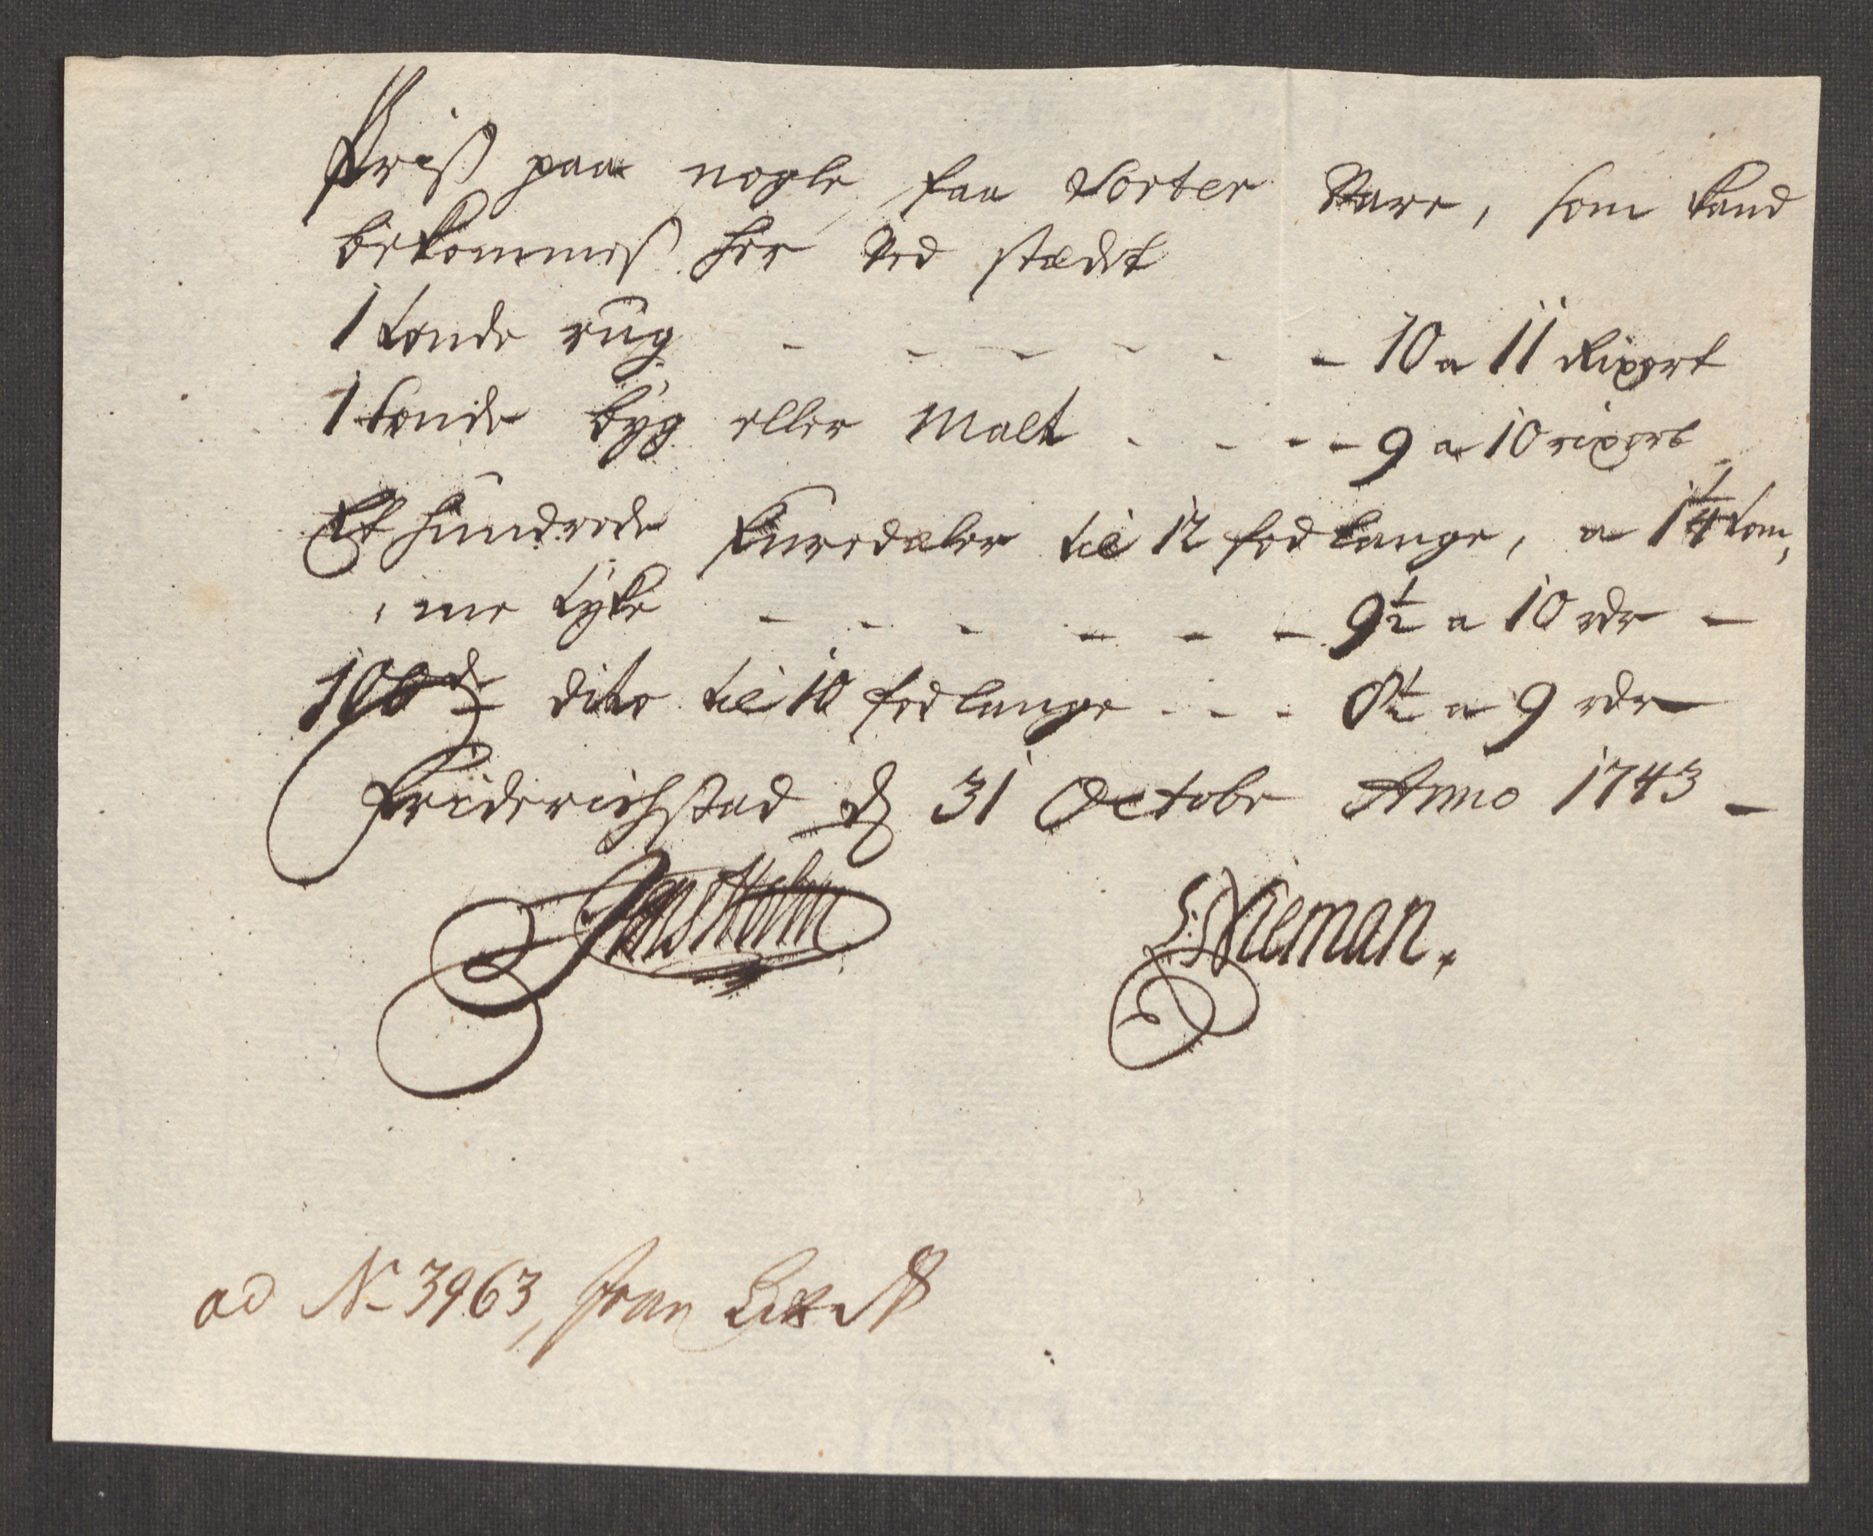 Priß paa nogle faa Sorter Vare, som kand
bekommeß her ved stædet
1 tønde rug - - - - - - 10 a 11 Rixort
1 tønde byg eller Malt - - - - 9 a 10 rixort
Et hundrede furedæler til 12 fod lange, a 1¼ tom,
me tyke - - - - - - 9½ a 10 rdr -
100de dito til 10 fod lange - - - 8½ a 9 rdr
Friderichstad d 31 Octobr Anno 1743 -
Jens Holm
Nieman.
ad No 3963,